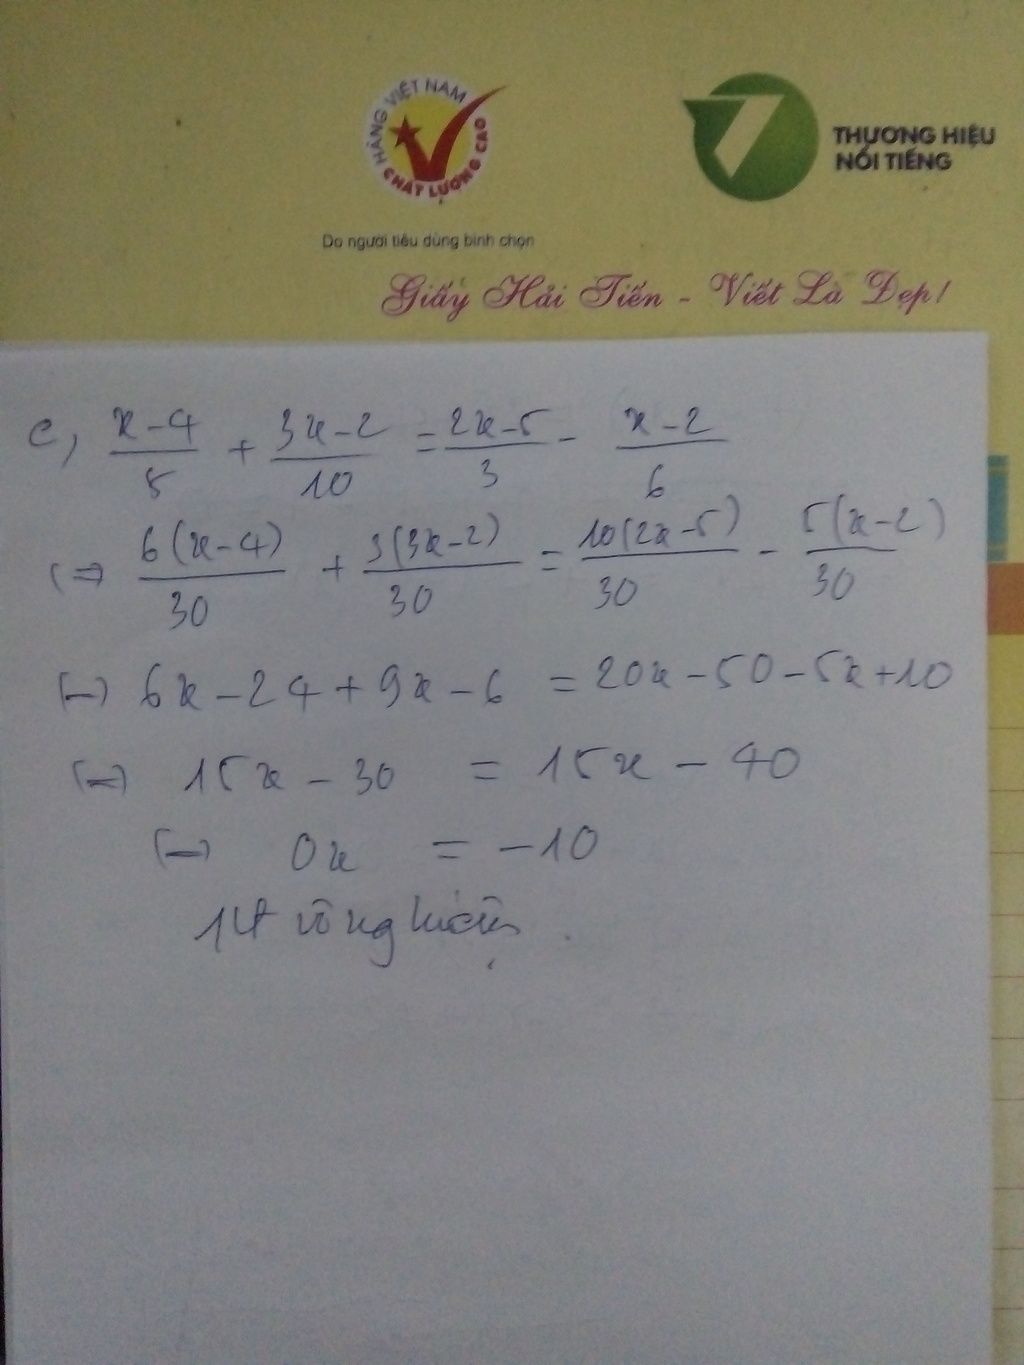 HÀNG VIỆT NAM
CHẤT LƯỢNG CAO
Do người tiêu dùng bình chọn
THƯƠNG HIỆU
NỔI TIẾNG
Giấy Hải Tiến - Viết Là Đẹp!
c, (x-4)/5 + (3x-2)/10 = (2x-5)/3 - (x-2)/6
(=) 6(x-4)/30 + 3(3x-2)/30 = 10(2x-5)/30 - 5(x-2)/30
(=) 6x - 24 + 9x - 6 = 20x - 50 - 5x + 10
(=) 15x - 30 = 15x - 40
(=) 0x = -10
vô nghiệm.